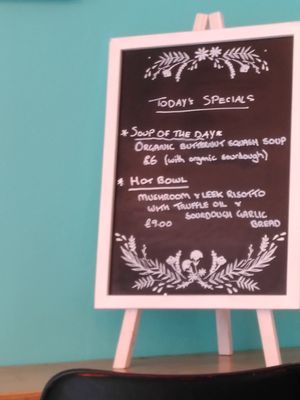 TODAY'S SPECIALS
* SOUP OF THE DAY *
ORGANIC BUTTERNUT SQUASH SOUP
£6 (with organic sourdough)
* HOT BOWL
MUSHROOM & LEEK RISOTTO
WITH TRUFFLE OIL &
SOURDOUGH GARLIC
£9.00 BREAD